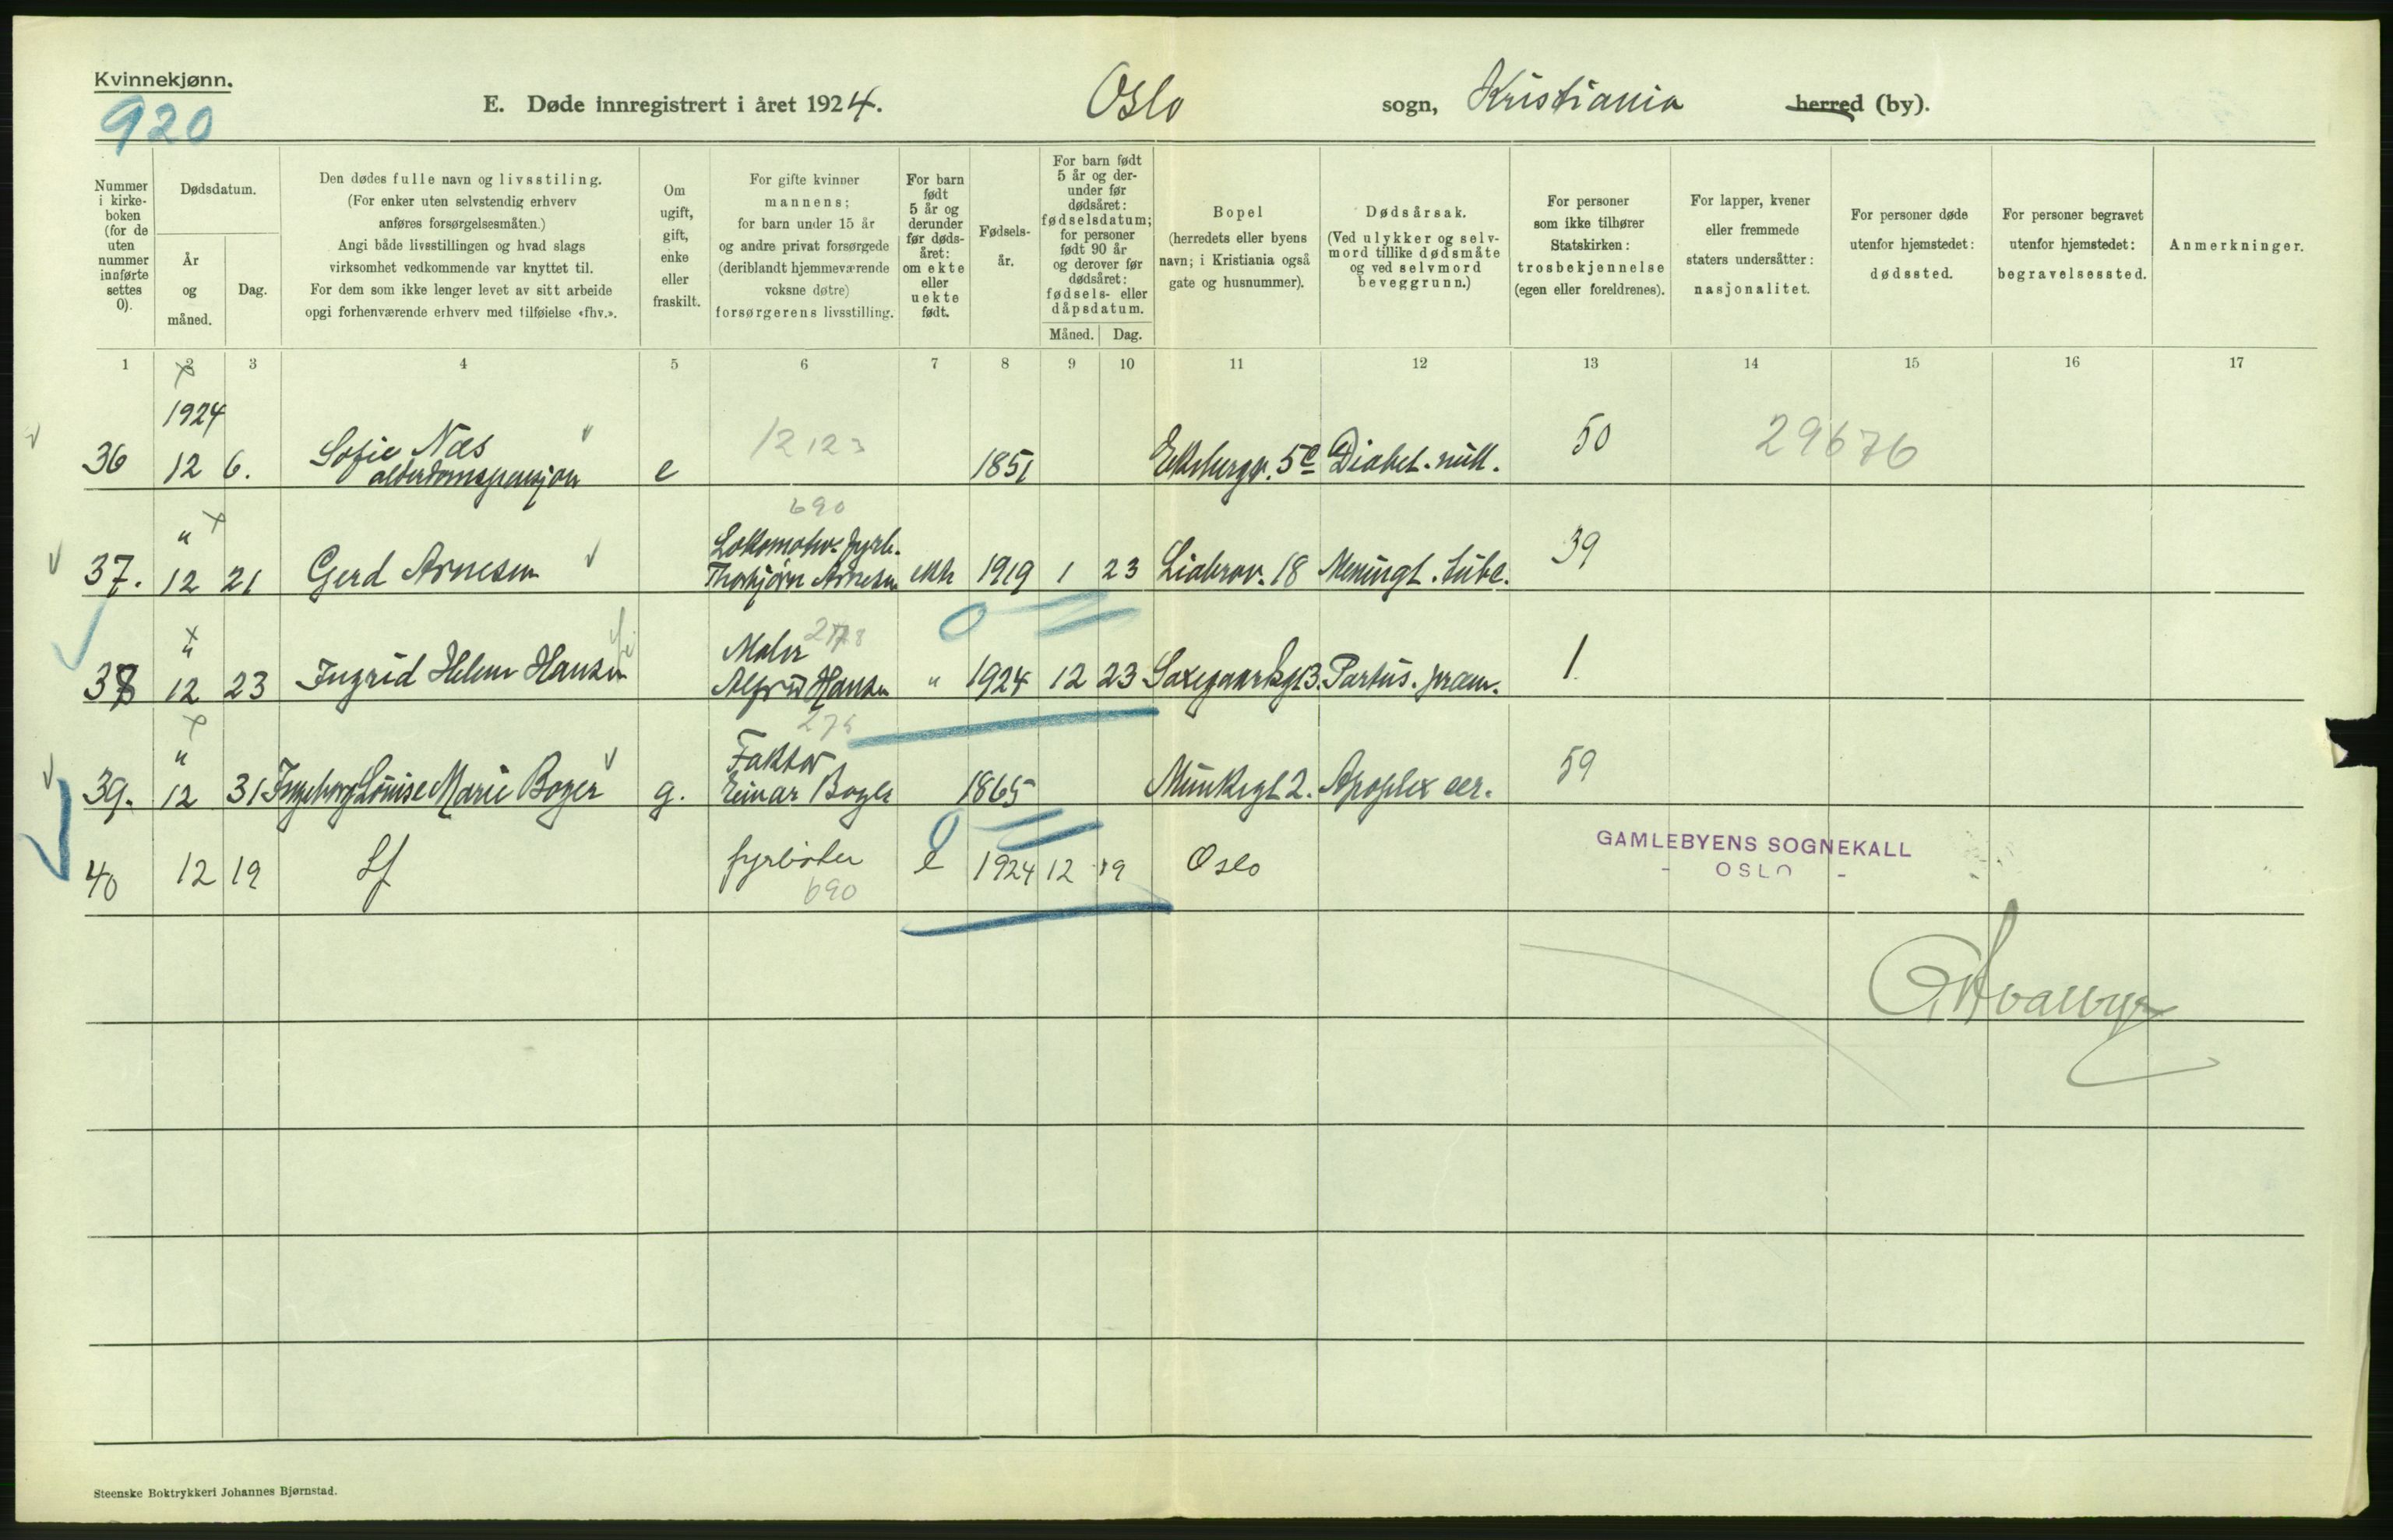 Kvinnekjønn.
920
E. Døde innregistrert i året 1924. Oslo sogn, Kristiania herred (by).
Nummer i kirke-boken (for de uten nummer innførte settes 0).
Dødsdatum.
År og måned.
Dag.
Den dødes fulle navn og livsstiling.
(For enker uten selvstendig erhverv
anføres forsørgelsesmåten.)
Angi både livsstillingen og hvad slags
virksomhet vedkommende var knyttet til.
For dem som ikke lenger levet av sitt arbeide
opgi forhenværende erhverv med tilføielse «fhv.».
Om ugift, gift, enke eller fraskilt.
For gifte kvinner
mannens;
for barn under 15 år
og andre privat forsørgede
(deriblandt hjemmeværende
voksne døtre)
forsørgerens livsstilling.
For barn født 5 år og derunder før døds-året: om ekte eller uekte født.
Fødsels-år.
For barn født
5 år og der-
under før
dødsåret:
fødselsdatum;
for personer
født 90 år
og derover før
dødsåret:
fødsels- eller
dåpsdatum.
Måned. Dag.
Bopel
(herredets eller byens
navn; i Kristiania også
gate og husnummer).
Dødsårsak.
(Ved ulykker og selv-
mord tillike dødsmåte
og ved selvmord
beveggrunn.)
For personer
som ikke tilhører
Statskirken:
trosbekjennelse
(egen eller foreldrenes).
For lapper, kvener
eller fremmede
staters undersåtter:
nasjonalitet.
For personer døde
utenfor hjemstedet:
dødssted.
For personer begravet
utenfor hjemstedet:
begravelsessted.
Anmerkninger.
1 2 3 4 5 6 7 8 9 10 11 12 13 14 15 16 17
1924
36 12 6. Sofie Næs e 12123 1851 5c Diabet. mill. 50 29676
alderdomspensjon
690
" Lokomotiv. fyrb.
37. 12 21 Gerd Arnesen Thorbjørn Arnesen ekte 1919 1 23 Liabrov. 18 Meningt. tube. 39
" Maler 278
38 12 23 Ingrid Helene Hansen Alfred Hansen " 1924 12 23 Saxegaardsgt 3. Partus. præm. 1
275
" Faktor
39. 12 31 Ingeborg Louise Marie Boger g. Einar Boger 1865 Munkegt 2. Apoplex cer. 59
40 12 19 Lf fyrbøter e 1924 12 19 Oslo
690
GAMLEBYENS SOGNEKALL
- OSLO -
Steenske Boktrykkeri Johannes Bjørnstad.